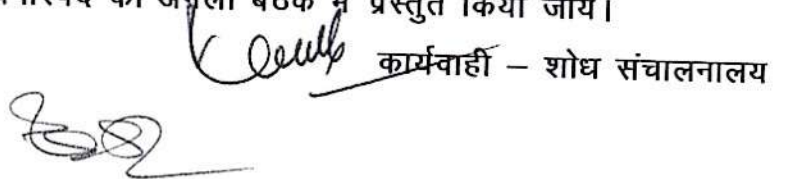 की अगली बैठक में प्रस्तुत किया जाय।
कार्यवाही – शोध संचालनालय